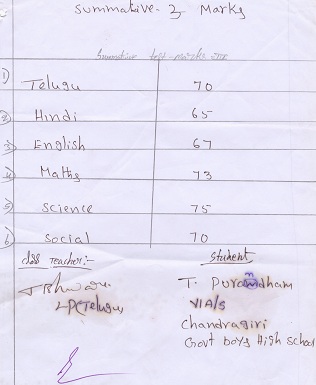 Summative - 3 Marks
Summative test - marks
1) Telugu 70
2) Hindi 65
3) English 67
4) Maths 73
5) Science 75
6) Social 70
class Teacher:- Student
T. Purandham
LP(Telugu) VI A/s
Chandragiri
Govt boys High school